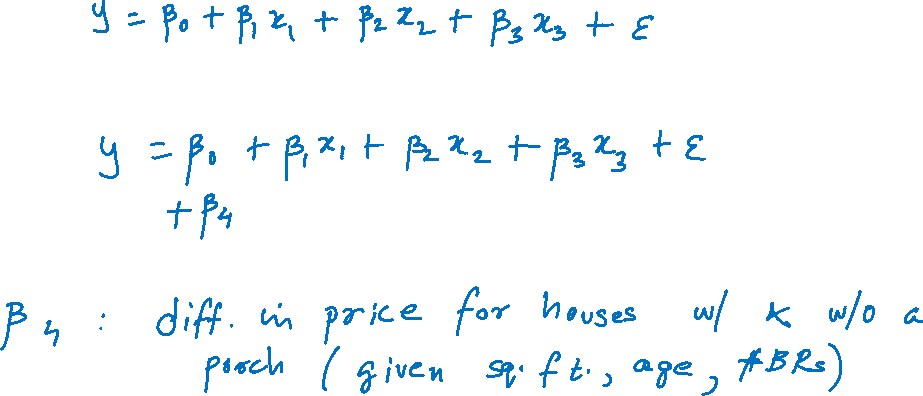 y = β₀ + β₁ x₁ + β₂ x₂ + β₃ x₃ + ε
y = β₀ + β₁ x₁ + β₂ x₂ + β₃ x₃ + ε
+ β₄
β₄ : diff. in price for houses w/ & w/o a
porch (given sq. ft., age, #BRs)